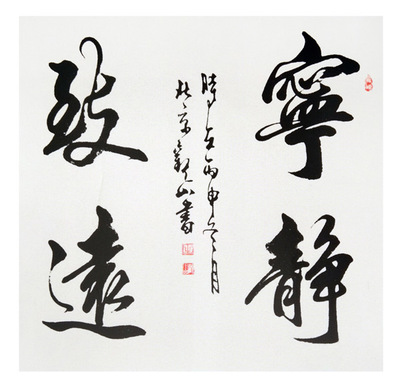 寧靜
致遠
時在丙申冬月
北京龍山書